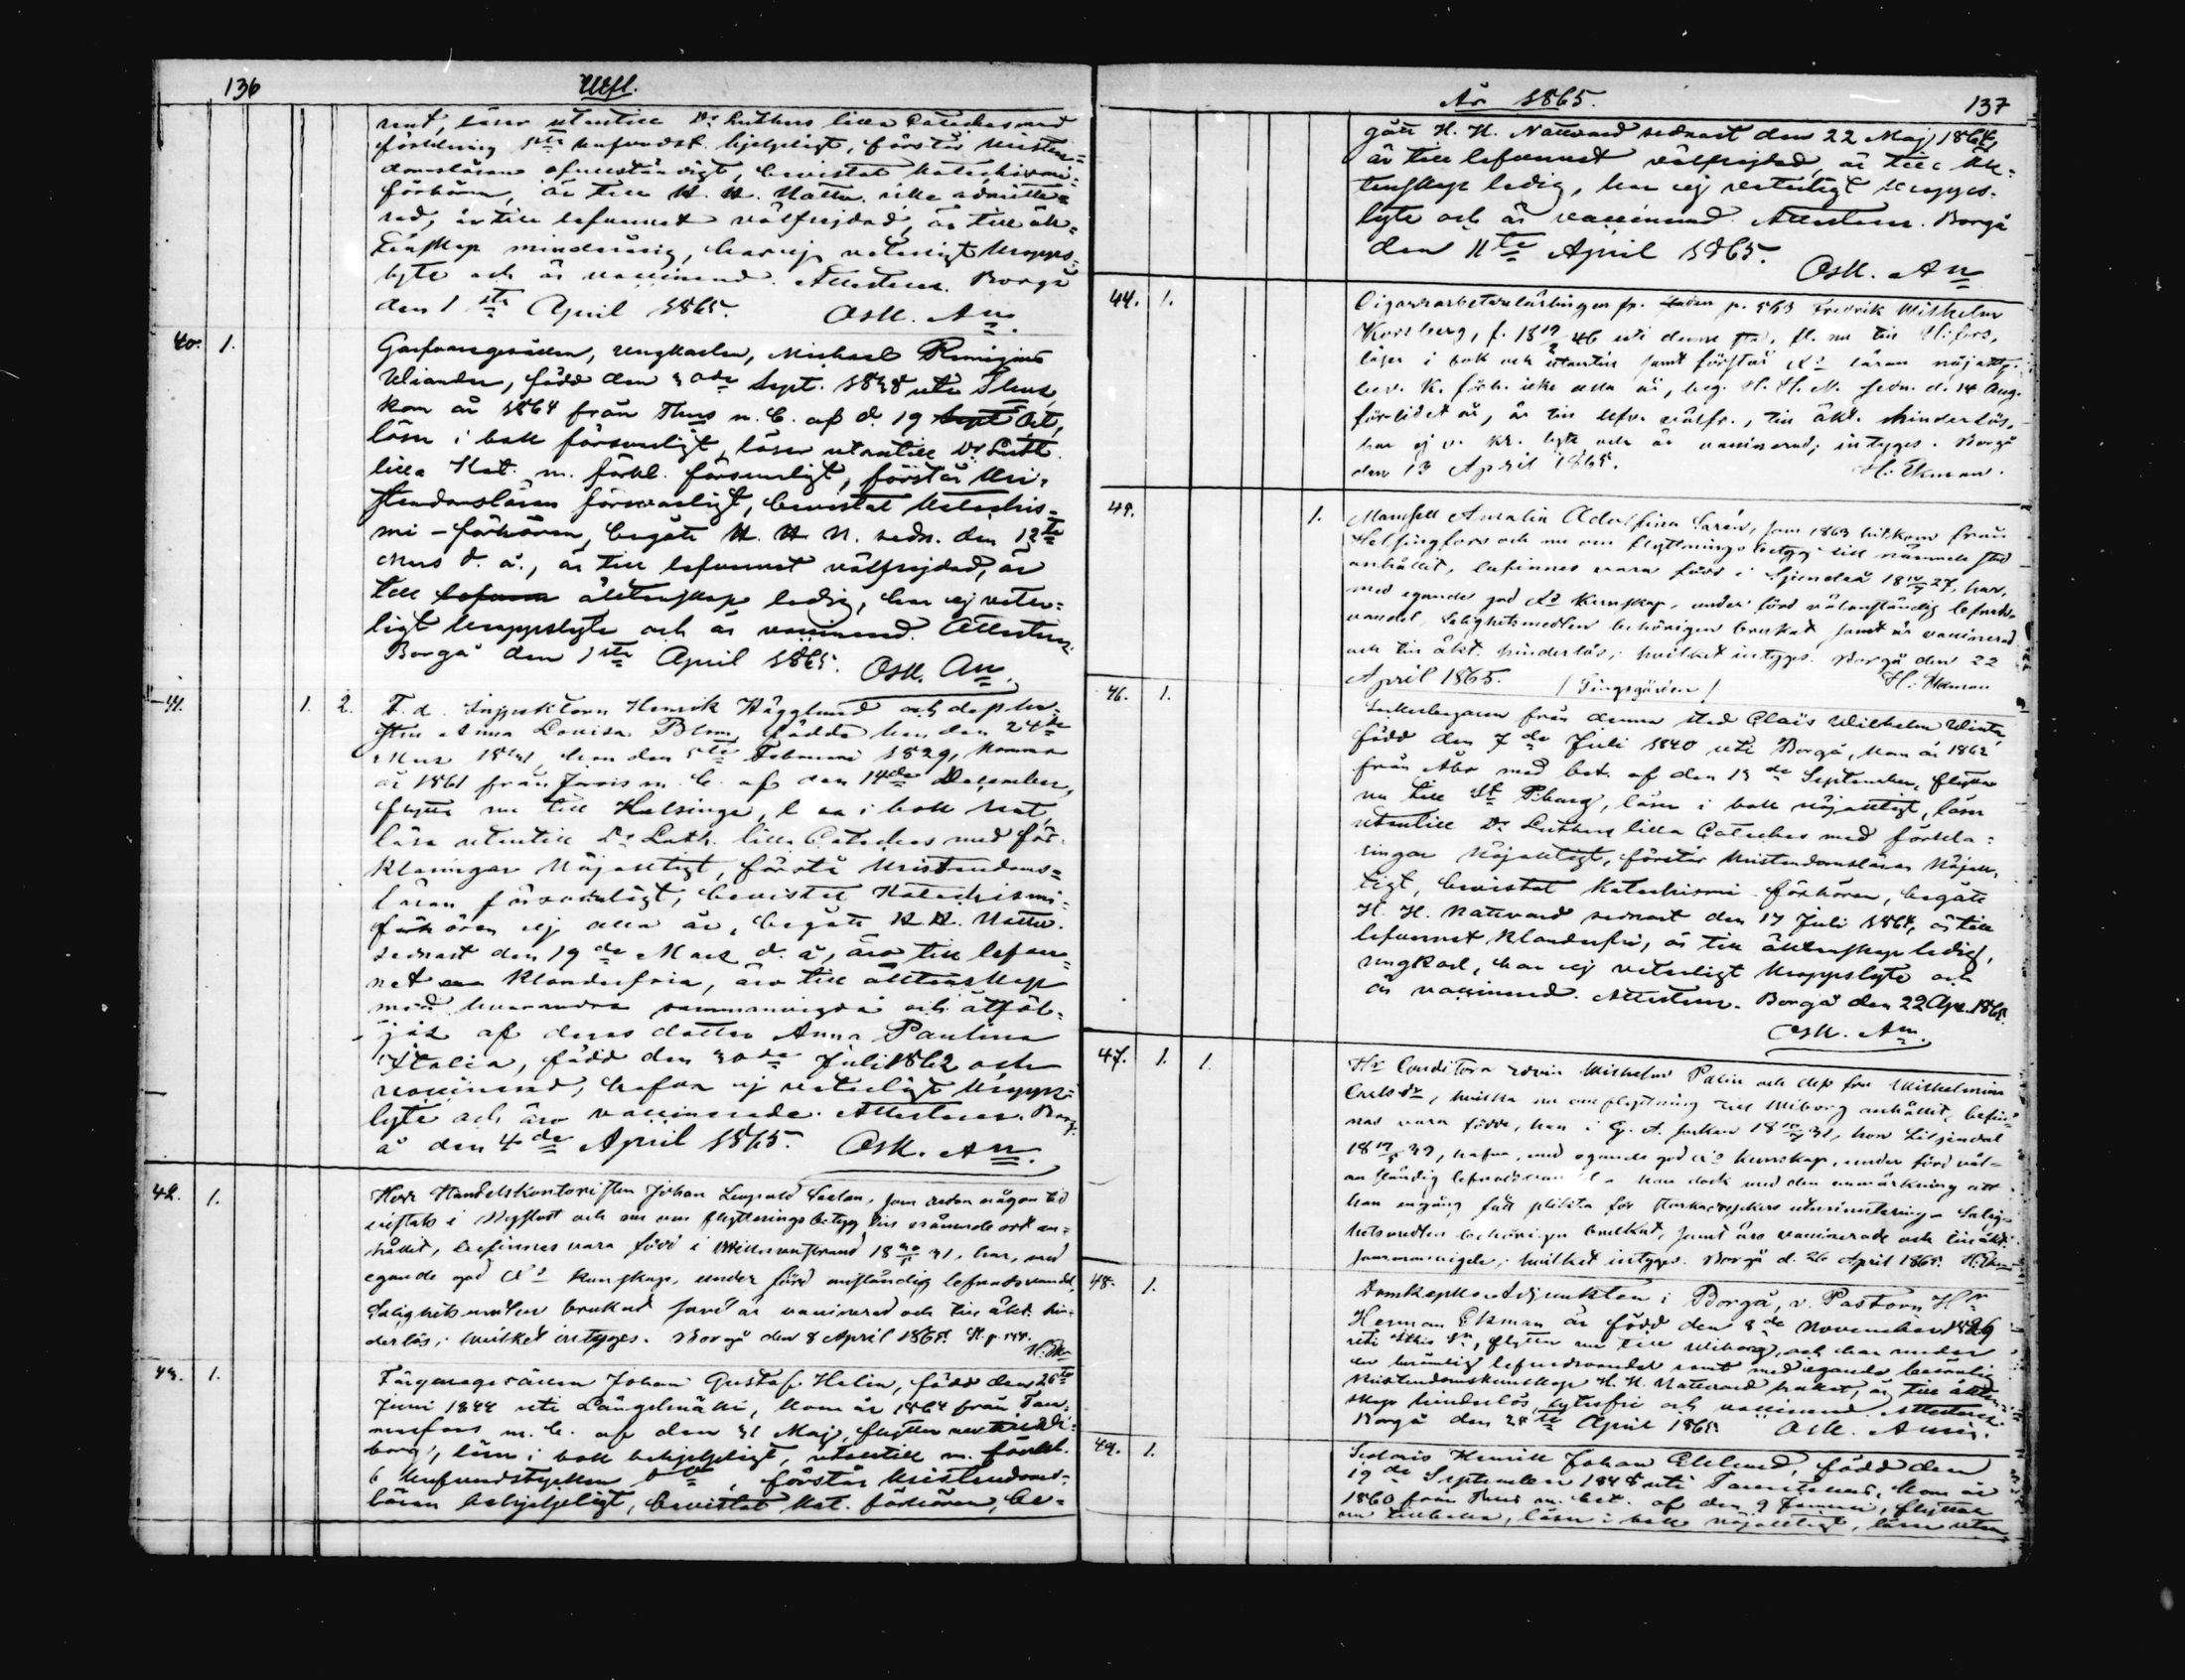 136
Utfl.
rent, läser utantill Dr Luthers lilla Cateches med
förklaring hjelpligt, förstår kristen=
domsläran ofullständigt, bevistat Katechismi=
förhören, är till H. H. Nattv. icke admitte=
rad, är till lefvernet välfrejdad, är till äk=
tenskap minderårig, har ej veterligt kropps=
lyte och är vaccinerad. Attesteras. Borgå
den 1ste April 1865. Osk. An.
40. 1.
Garfvaregesällen, ungkarlen, Michael Remigius
Uliander, född den 30de Sept. 1838 uti Thus,
kom år 1864 från Thus m. b. af d. 19 Sept Oct,
läser i bok försvarligt, läser utantill Dr Luth.
lilla Kat. m. förkl. försvarligt, förstår kri=
stendomsläran försvarligt, bevistat Katechis=
mi-förhören, begått H. H. N. sedn. den 12te
Mars d. å., är till lefvernet välfrejdad, är
till äktenskap ledig, har ej veter=
ligt kroppslyte och är vaccinerad. Attesteras.
Borgå den 1ste April 1865. Osk. An.
41. 1. 2.
F. d. Inspektorn Henrik Hägglund och dess hu=
stru Anna Lovisa Blom, födde han den 24de
Mars 18, hon den 5te Februari 1829, komna
år 1861 från m. b. af den 14de December,
flytta nu till Helsinge, läsa i bok rent,
läsa utantill Dr Luth. lilla Cateches med för=
klaringar Nöjaktigt, förstå kristendoms=
läran försvarligt, bevistat Katechismi=
förhören ej alla år, begått H. H. Nattv.
sednast den 19de Mars d. å, äro till lefver=
net klanderfria, äro till äktenskap
med hvarandra sammanvigda och åtföl=
jas af deras dotter Anna Paulina
Italia, född den 30de Juli 1862 och
vaccinerad, hafva ej veterligt kropps=
lyte och äro vaccinerade. Attesteras. Borg=
å den 4de April 1865. Osk. An.
42. 1.
Herr Handelskontoristen Johan Leopold Saelan, som sedan någon tid
vistats i Nyslott och nu om flyttningsbetyg till nämnde ort an=
hållit, befinnes vara född i Willmanstrand 18 31, har, med
egande god Xs kunskap, under förd anständig lefnadsvandel,
Salighetsmedlen brukat samt är vaccinerad och till äkt. hin=
derlös; hvilket intyges. Borgå den 8 April 1865.
43. 1.
Färgaregesällen Johan Gustaf Helin, född den 26te
Juni 1844 uti Längelmäki, kom år 1864 från Tam=
merfors m. b. af den 31 Maj, flyttar nu till Wi=
borg, läser i bok behjelpligt, utantill m. förkl.
6 hufvudstycken , förstår kristendoms=
läran behjelpligt, bevistat Kat. förhören, be=
År 1865.
137
gått H. H. Nattvard sednast den 22 Maj 1864,
är till lefvernet välfrejdad, är till äk=
tenskap ledig, har ej veterligt kropps=
lyte och är vaccinerad. Attesteras. Borgå
den 11te April 1865. Osk. An
44. 1.
Cigarrarbetarelärlingen p. 563 Fredrik Wilhelm
Korsberg, f. 18 46 uti denne stad, fl. nu till H:fors,
läser i bok och utantill samt förstår Xs läran nöjaktgt.
bev. K. förh. icke alla år, beg. H. H. N. sedn. d. 14 Aug.
förlidet år, är till lefv. välfr., till äkt. hinderlös,
har ej v. kr. lyte och är vaccinerad; intyges. Borgå
den 13 April 1865. H. Ekman.
45. 1.
Mamsell Amalia Adolfina Sarén, som 1863 hitkom från
Helsingfors och nu om flyttningsbetyg till nämnde stad
anhållit, befinnes vara född i Sjundeå 18 27, har,
med egande god Xs kunskap, under förd välanständig lefnads=
vandel, Salighetsmedlen behörigen brukat samt är vaccinerad
och till äkt. hinderlös; hvilket intyges. Borgå den 22
April 1865. H. Ekman
46. 1.
Sockerbagaren från denna stad Claës Wilhelm Winter,
född den 7de Juli 1840 uti Borgå, kom år 1862
från Åbo med bet. af den 13de September, flyttar
nu till St P:burg, läser i bok nöjaktigt, läser
utantill Dr Luthers lilla Cateches med förkla=
ringar Nöjaktigt, förstår kristendomsläran Nöjak=
tigt, bevistat Katechismi förhören, begått
H. H. Nattvard sednast den 17 Juli 1864, är till
lefvernet klanderfri, är till äktenskap ledig,
ungkarl, har ej veterligt kroppslyte och
är vaccinerad. Attesteras. Borgå den 22 Apr. 1865.
Osk. An.
47. 1. 1.
Hr Conditorn Wilhelm Palin och dess fru Wilhelmina
, hvilka nu om flyttning till Wiborg anhållit, befin=
nas vara födde, han i 18 31, hon Liljendal
18 39, hafva, med egande god Xs kunskap, under förd väl=
anständig lefnadsvandel - han dock med den anmärkning att
han engång fått plikta för starkadryckers utminutering - Salig=
hetsmedlen behörigen brukat, samt äro vaccinerade och till äkt.
sammanvigde; hvilket intyges. Borgå d. 26 April 1865. H. Ekman
48. 1.
Domkapitels Adjunkten i Borgå, v. Pastorn Hr
Herman Ekman är född den 8de November 1829
uti , flyttar nu till Wiborg, och har under
en berömlig lefnadsvandel samt med egande berömlig
kristendomskunskap H. H. Nattvard brukat, är till äkten=
skap hinderlös, lytesfri och vaccinerad. Attesteras.
Borgå den 28de April 1865. Osk.
49. 1.
Henrik Johan Eklund, född den
19de September 1848 uti , kom år
1860 från Thus m. bet. af den 9 , flyttar
nu tillbaka, läser i bok nöjaktigt, läser utan